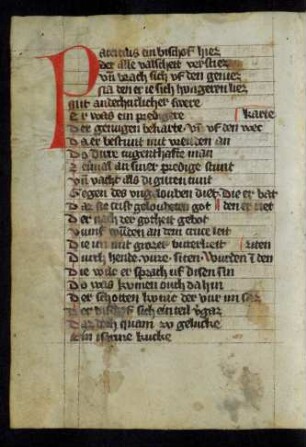 Patricius ein bischof hiez
Der alle valscheit verstiez
Vn̄ brach sich vf den geniez
Sta den er ie sich hungern liez
Mit andechticlicher swere
Er was ein predigere karte
Der genugen beharte vn̄ vf den wec
Da er bestunt mit werken an
Do dirre tugenthafte man
Zeimal an siner predige stunt
Vn̄
Gegen des vngelouben diet die er bat
Daz sie crist geloubeten got den er riet
Der nach der gotheit gebot
wunden an dem cruce leit
Die im mit grozer bitterkeit siten
Durch hende vuze siten wurden
Die wile er sprach vf disen sin
Do was kumen ouch dahin
Der schotten kunic der vur im saz
Der bischof sich ein teil vergaz
Dar doch quam zv gelucke
Ein isrine krucke